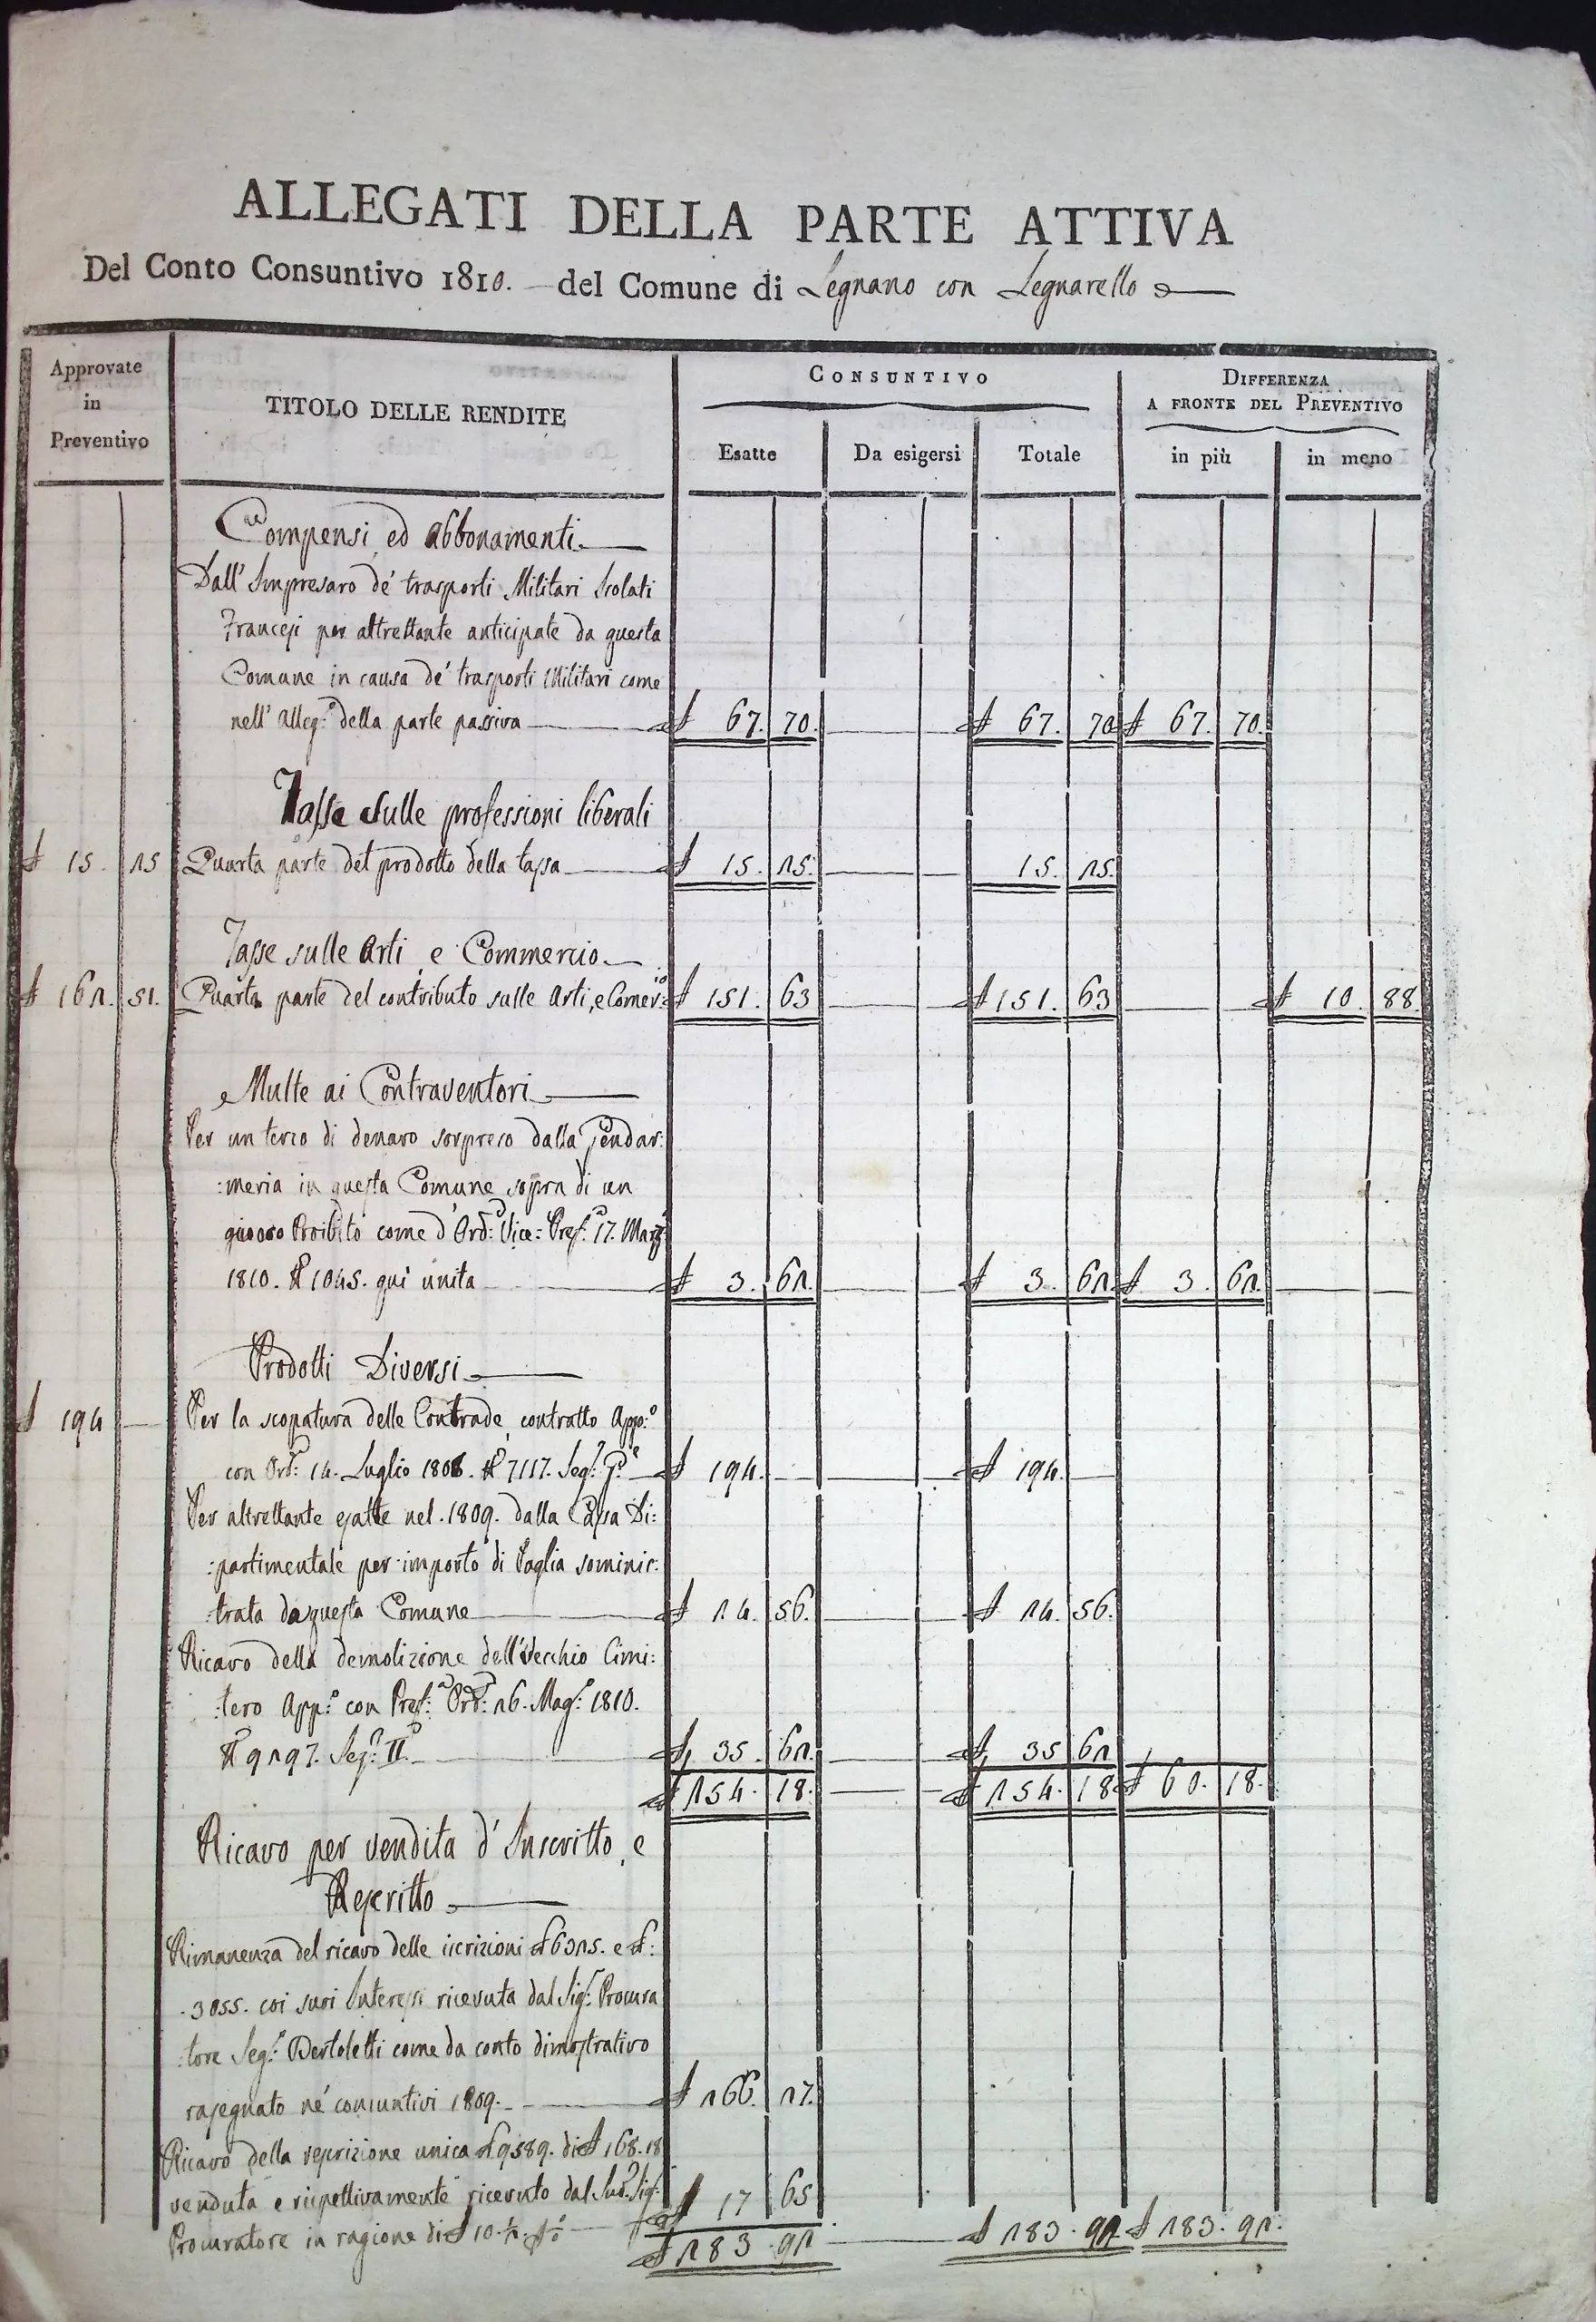 ALLEGATI DELLA PARTE ATTIVA
Del Conto Consuntivo 1810. del Comune di Legnano con Legnarello
Approvate in Preventivo
TITOLO DELLE RENDITE
CONSUNTIVO
DIFFERENZA A FRONTE DEL PREVENTIVO
Esatte Da esigersi Totale in più in meno
Compensi ed abbonamenti
Dall' Impresaro de' trasporti Militari Isolati
Francesi per altrettante anticipate da questa
Comune in causa de' trasporti Militari come
nell' alleg:o della parte passiva £ 67. 70. £ 67. 70 £ 67. 70.
Tasse sulle professioni liberali
£ 15. 25 Quarta parte del prodotto della tassa £ 15. 25. 15. 25.
Tasse sulle Arti e Commercio
£ 162. 51. Quarta parte del contributo sulle Arti, e Comer:io £ 151. 63 £ 151. 63 £ 10. 88.
Multe ai Contraventori
Per un terzo di denaro sorpreso dalla Gendar:
:meria in questa Comune sopra di un
giuoco Proibito come d'Ord:a Vice=Pref:a 17. Marzo
1810. N 1045. qui unita £ 3. 62. £ 3. 62 £ 3. 62.
Prodotti Diversi
£ 194 Per la scopatura delle Contrade contratto App:o
con Ord:a 14. Luglio 1808. N 7117. Seg:e P:e £ 194. £ 194.
Per altrettante esatte nel 1809. dalla Cassa Di:
:partimentale per importo di Paglia sominis:
:trata da questa Comune £ 24. 56. £ 24. 56.
Ricavo della demolizione dell' Vecchio Cimi:
:tero App:o con Pref:a Ord:a 26. Mag:o 1810.
N 9297. Sez:e II £ 35. 62. £ 35 62
£ 254. 18. £ 254. 18 £ 60. 18.
Ricavo per vendita d' Inscritto, e
Rescritto
Rimanenza del ricavo delle iscrizioni £ 6325. e £:
3055. coi suoi Interessi ricevuta dal Sig:r Procura
:tore Seg:o Bertoletti come da conto dimostrativo
rasegnato ne' consuntivi 1809. £ 266. 27.
Ricavo della rescrizione unica £ 9589. di £ 168.18
venduta e rispettivamente ricevuto dal Sud:o Sig:r £ 17 65
Procuratore in ragione di £ 10.
£ 283. 92 £ 283. 92 £ 283. 92.